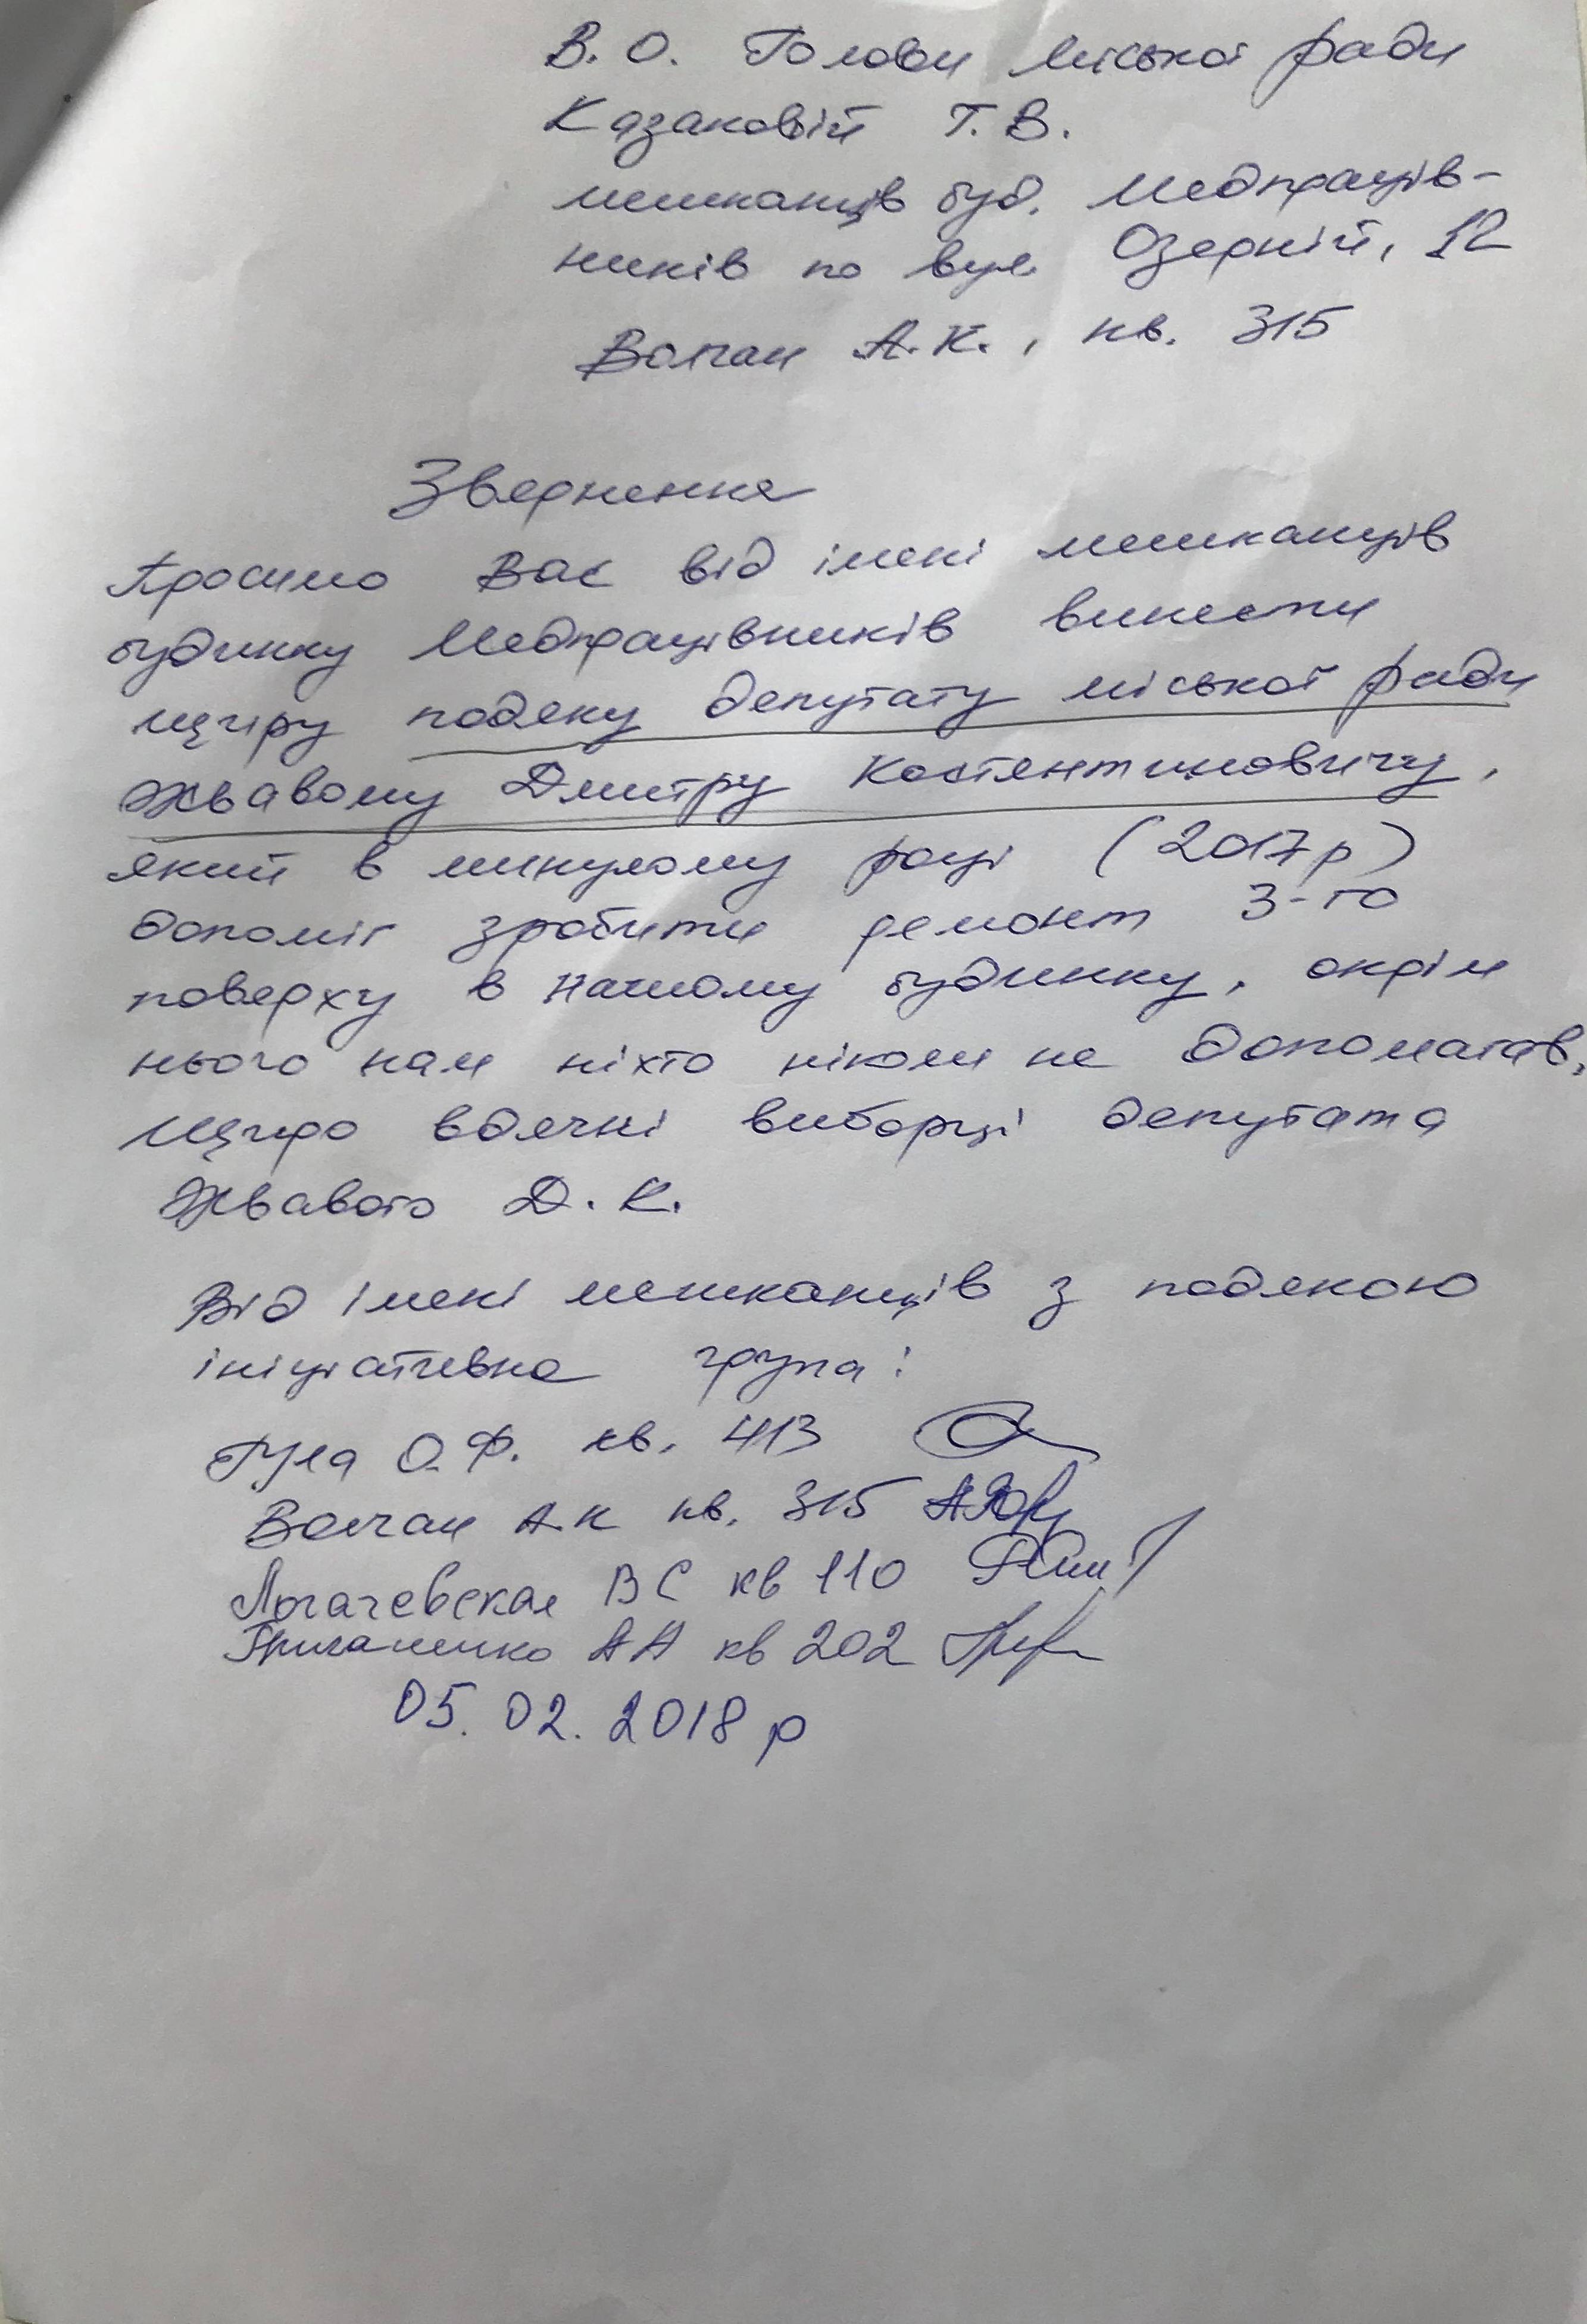 В. О. Голови міської ради
Казаковій Т. В.
мешканців буд. Медпраців-
ників по вул. Озерній, 12
Волчан А.К., кв. 315
Звернення
Просимо Вас від імені мешканців
будинку Медпрацівників винести
щиру подяку депутату міської ради
Жвавому Дмитру Костянтиновичу,
який в минулому році (2017р)
допоміг зробити ремонт 3-го
поверху в нашому будинку, окрім
нього нам ніхто ніколи не допомагав,
Щиро вдячні виборці депутата
Жвавого Д. К.
Від імені мешканців з подякою
ініціативна група:
Гула О.Ф. кв. 413
Волчан А.К кв. 315
Логачевская В С кв 110
А А кв 202
05. 02. 2018 р